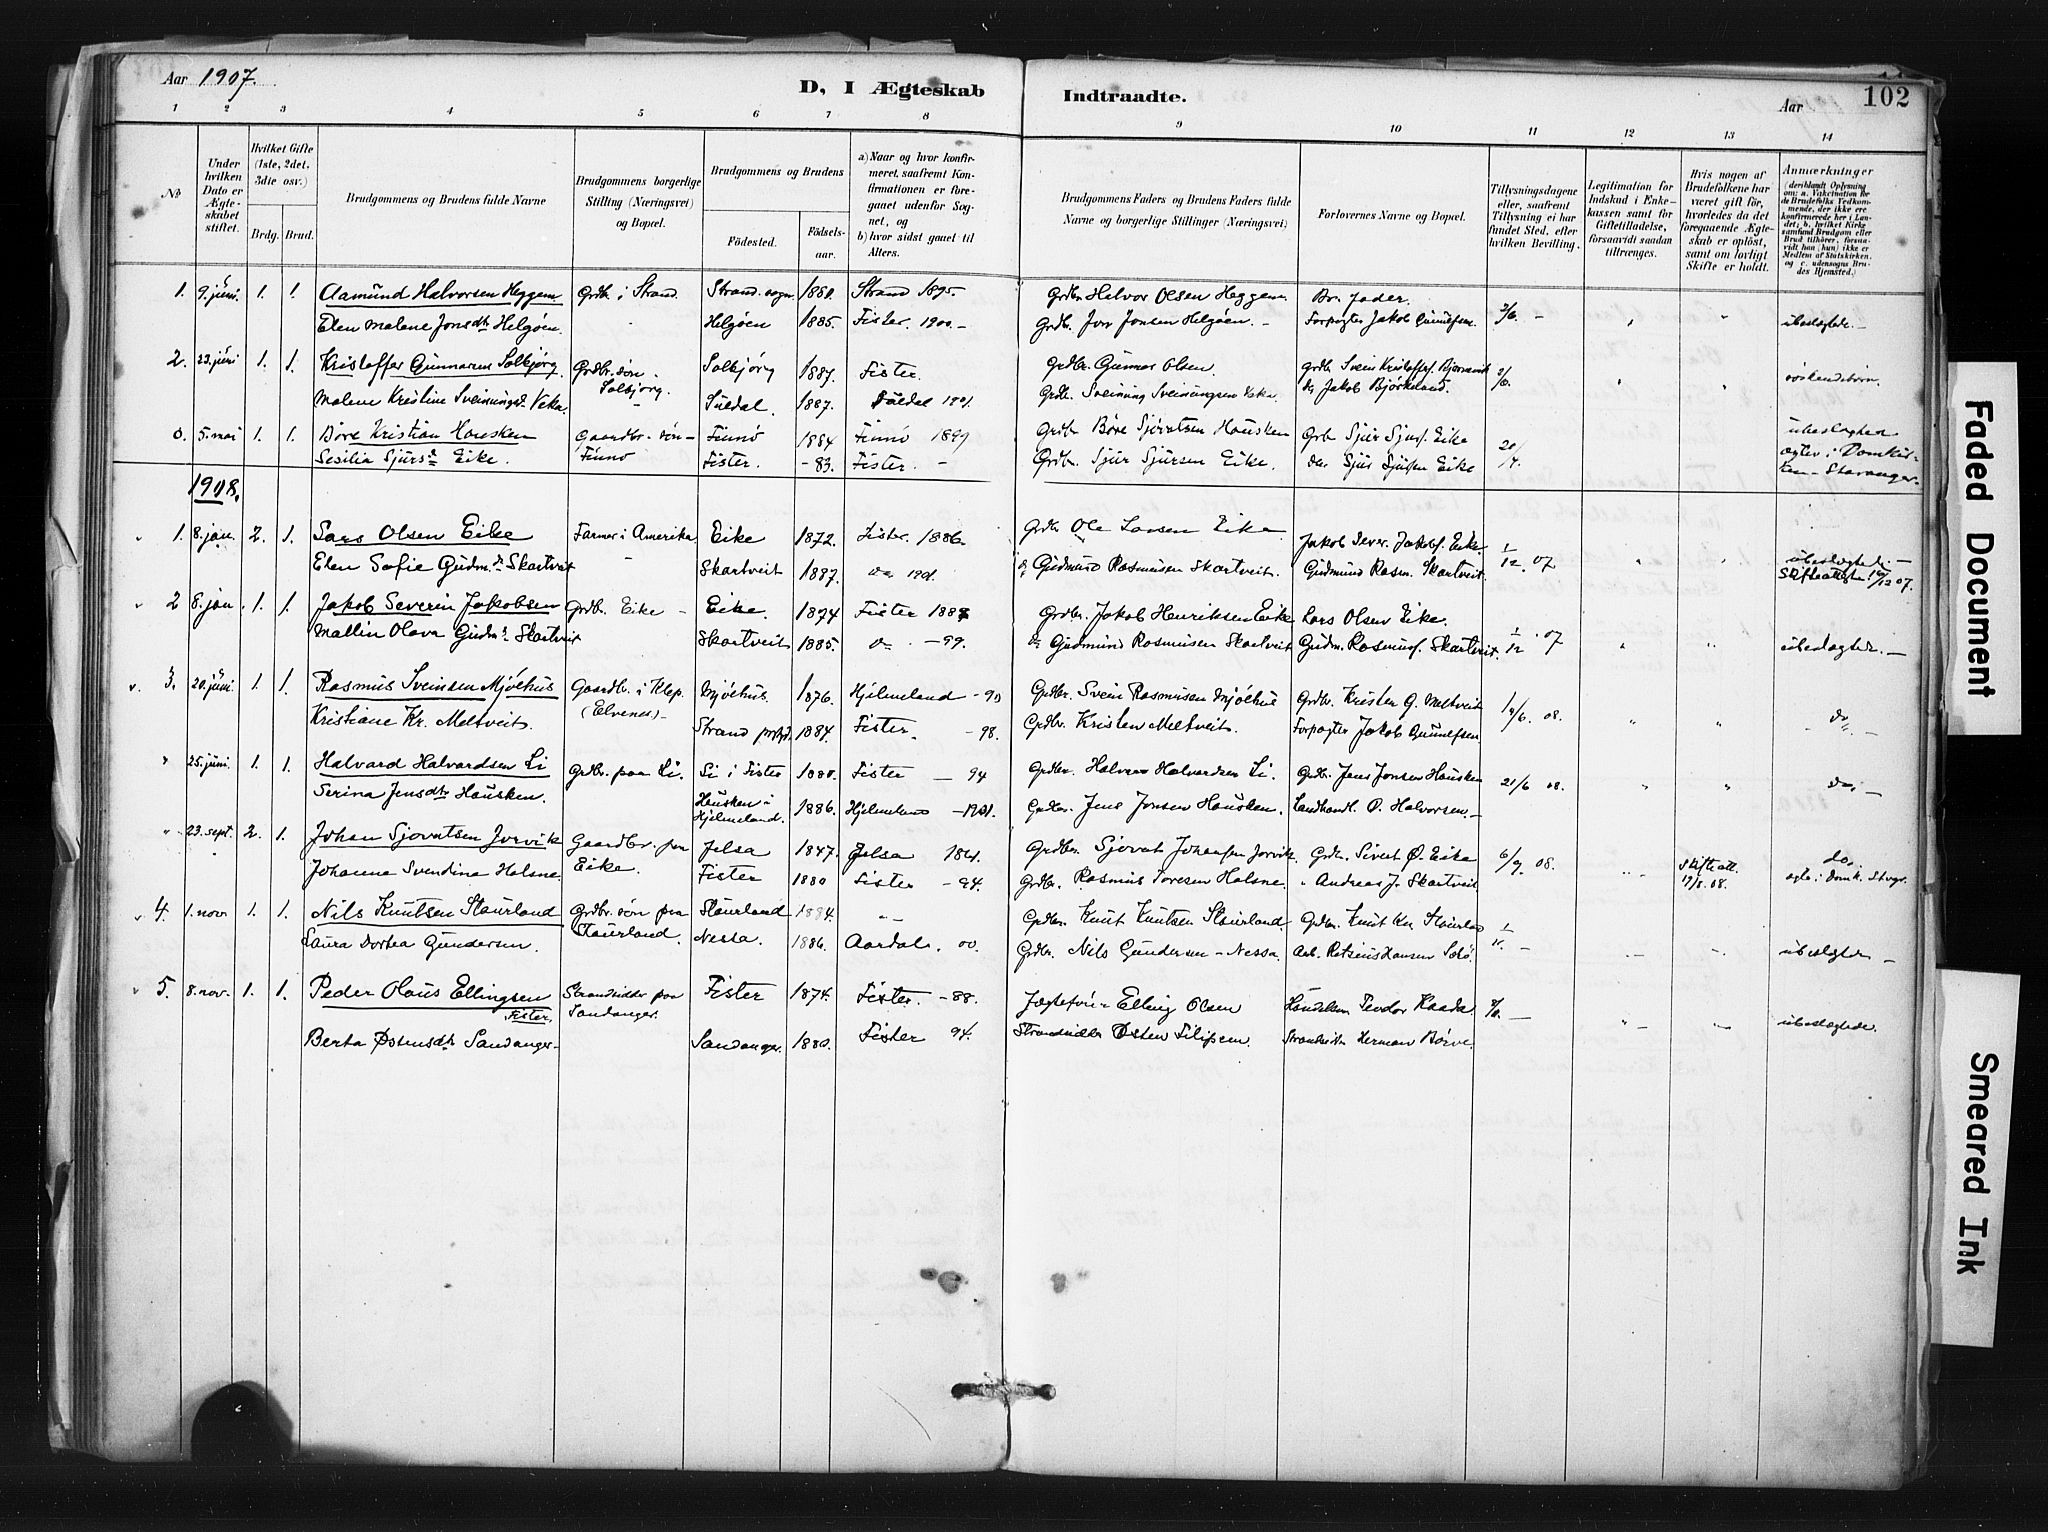 Aar 1907.
D, I Ægteskab Indtraadte.
Aar 102
1 2 3 4 5 6 7 8 9 10 11 12 13 14
No
Under hvilken Dato er Ægteskabet stiftet.
Hvilket Gifte (1ste, 2det, 3die osv.)
Brdg. Brud.
Brudgommens og Brudens fulde Navne
Brudgommens borgerlige Stilling (Næringsvei) og Bopæl.
Brudgommens og Brudens
Fødested. Fødselsaar.
a) Naar og hvor konfirmeret, saafremt Konfirmationen er foregaaet udenfor Sognet, og
b) hvor sidst gaaet til Alters.
Brudgommens Faders og Brudens Faders fulde Navne og borgerlige Stillinger (Næringsvei)
Forlovernes Navne og Bopæl.
Tillysningsdagene eller, saafremt Tillysning ei har fundet Sted, efter hvilken Bevilling.
Legitimation for Indskud i Enkekassen samt for Giftetilladelse, forsaavidt saadan tiltrænges.
Hvis nogen af Brudefolkene har været gift før, hvorledes da det foregaaende Ægteskab er opløst, samt om lovligt Skifte er holdt.
Anmærkninger
(deriblandt Oplysning om: a. Vakcination for de Brudefolks Vedkommende, der ikke ere konfirmerede her i Landet; b. hvilket Kirkesamfund Brudgom eller Brud tilhører, forsaavidt han (hun) ikke er Medlem af Statskirken, og c. udensogns Brudes Hjemsted.)
1. 9. juni. 1. 1. Aamund Halvorsen Heggem Grdb. i Strand. Strand sogn 1880. Strand 1895. Grdbr. Halvor Olsen Heggem Br. fader. 2/6. -
Elen Malene Jonsdtr Helgøen. Helgøen 1885. Fister. 1900. - Grdb. Jon Jonsen Helgøen. - Forpagter Jakob Gunulfsen ubeslægtede. -
2. 23. juni 1. 1. Kristoffer Gunnarsen Solbjørg. Grdbr. søn Solbjørg. Solbjørg 1887. Fister. Grdbr. Gunnar Olsen. Grdbr. Svein Kristoffs. Bjørnevik
Malene Kristine Sveinungsd. Veka. Suldal. 1887. Suldal 1901. Grdbr. Sveinung Sveinungsen Veka. do Jakob Bjørkeland. søskendebørn.
0. 5. mai 1. 1. Børe Kristian Hausken Gaardbr. søn Finnø Finnø 1884 Finnø 1899 Grdbr. Børe Sjovatsen Hausken Grb. Sjur Sjurs. Eike 20/4. ubeslægtede
Sesilia Sjursd. Eike. Fister. - 83. Fister. - Grdbr. Sjur Sjursen Eike. do Sjur Sjursen Eike ægtev. i Domkirken - Stavanger.
1908.
1. 8. jan. 2. 1. Lars Olsen Eike Farmer i Amerika Eike 1872. Fister. 1886. Grdbr. Ole Larsen Eike Jakob Sever. Jakobs. Eike. 1/12. 07
Elen Sofie Gudm.d. Skartveit Skartveit 1887. do 1901. do Gudmund Rasmusen Skartveit. Gudmund Rasm. Skartveit. ubeslægtede. - Skifteattester 16/12 07.
2 8. jan. 1. 1. Jakob Severin Jakobsen Grdb. Eike - Eike. 1874 Fister 1888 Grdbr. Jakob Henriksen Eike Lars Olsen Eike. 1/12. 07
Mallin Olava Gudm.d. Skartveit Skartveit 1885. do - 99. do Gudmund Rasmusen Skartveit Gudm. Rasmuss. Skartveit. ubeslægtede. -
3. 20. juni 1. 1. Rasmus Sveinsen Mjølhus Gaardbr. i Klep. (Elvenes) - Mjølhus 1876. Hjelmeland - 90 Grdbr. Svein Rasmusen Mjølhus Grdbr. Kristen G. Meltveit 14/6. 08. do. -
Kristiane Kr. Meltveit. Strand prstgj. 1884. Fister. - 98. Grdbr. Kristen Meltveit. Forpagter Jakob Gunulfsen
25. juni. 1. 1. Halvard Halvardsen Li Grdbr. paa Li. Li i Fister 1880. Fister - 94 Grdbr. Halvard Halvardsen Li. Grdbr. Jens Jonsen Hausken 21/6 08. do. -
Serina Jensdtr Hausken. Hausken i Hjelmeland. 1886. Hjelmeland - 1901. Grdbr. Jens Jonsen Hausken. Landhandl. O. Halvorsen. -
23. sept. 2. 1. Johan Sjovatsen Jorvik Gaardbr. paa Eike. Jelsa 1847. Jelsa 1861. Grdbr. Sjovat Johansen Jorvik. Grdbr. Sivert Ø. Eike 6/9 08. skifteatt. 17/8. 08. do.
Johanna Svendina Halsne. Fister 1880 Fister - 94. Grdbr. Rasmus Toresen Halsne. " Andreas J. Skartveit ægtev. i Domk. Stvgr.
4. 1. nov. 1. 1. Nils Knutsen Staurland Grdbr. søn paa Staurland. Staurland 1884. Grdbr. Knut Knutsen Staurland. Grdbr. Knut Kn. Staurland 1/11. -
Laura Dortea Gundersen. Nessa. 1886. Aardal. 00. Grdbr. Nils Gundersen - Nessa. Arb. Retsius Hansen ubeslægtede -
5. 8. nov. 1. 1. Peder Olaus Ellingsen Fister. Strandsidder paa Sandanger. Fister 1874. Fister. - 88. Elling Olsen Teodor Kaada
Berta Østensdtr Sandanger. Sandanger. 1880. Fister 94. Strandsidder Østen Filipsen. Strandsidder Herman Børve. ubeslægtede.
Faded Document
Smeared Ink